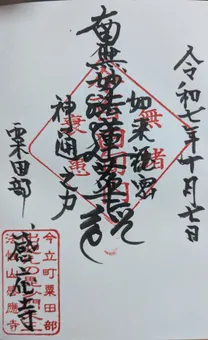 令和七年十月七日
無諸
衰患
如来秘密
南無妙法蓮華経
神通之力
粟田部
感応寺
今立町粟田部
感應寺